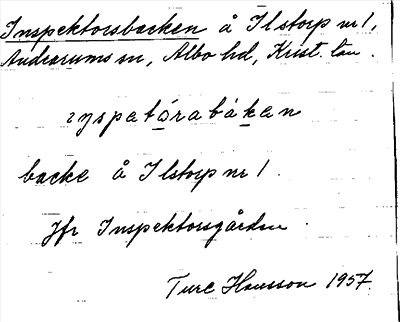 Inspektorsbacken å Ilstorp nr 1,
Andrarums sn, Albo hd, Krist. län.
ɪnspetórabákan
backe å Ilstorp nr 1.
Jfr Inspektorsgården.
Ture Hansson 1957.